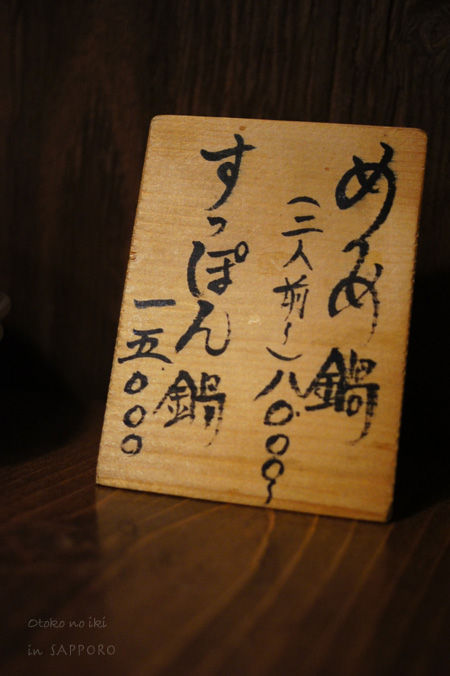 めんめ鍋
(三人前〜)八〇〇〇〜
すっぽん鍋
一五〇〇〇
Otoko no iki
in SAPPORO